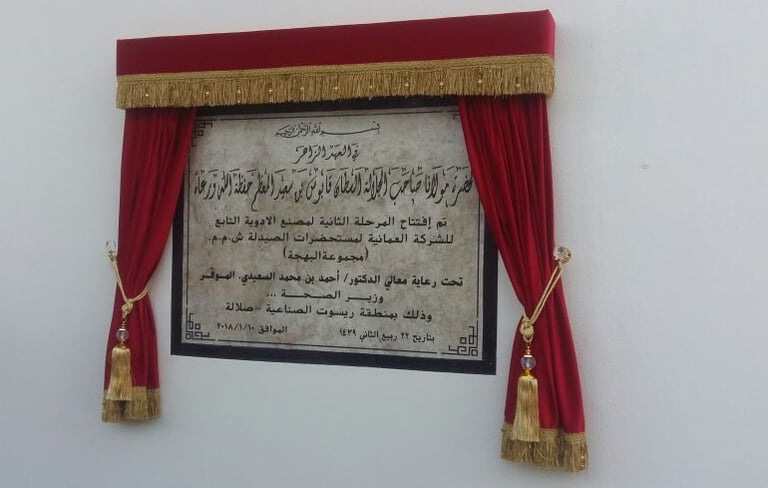 بسم الله الرحمن الرحيم
في العهد الزاهر
لحضرة مولانا صاحب الجلالة السلطان قابوس بن سعيد المعظم حفظه الله ورعاه
تم إفتتاح المرحلة الثانية لمصنع الادوية التابع
للشركة العمانية لمستحضرات الصيدلة ش.م.م.
(مجموعة البهجة)
تحت رعاية معالي الدكتور/ أحمد بن محمد السعيدي. الموقر
وزير الصحة ...
وذلك بمنطقة ريسوت الصناعية - صلالة
بتاريخ ٢٢ ربيع الثاني ١٤٣٩ الموافق ٢٠١٨/١/١٠